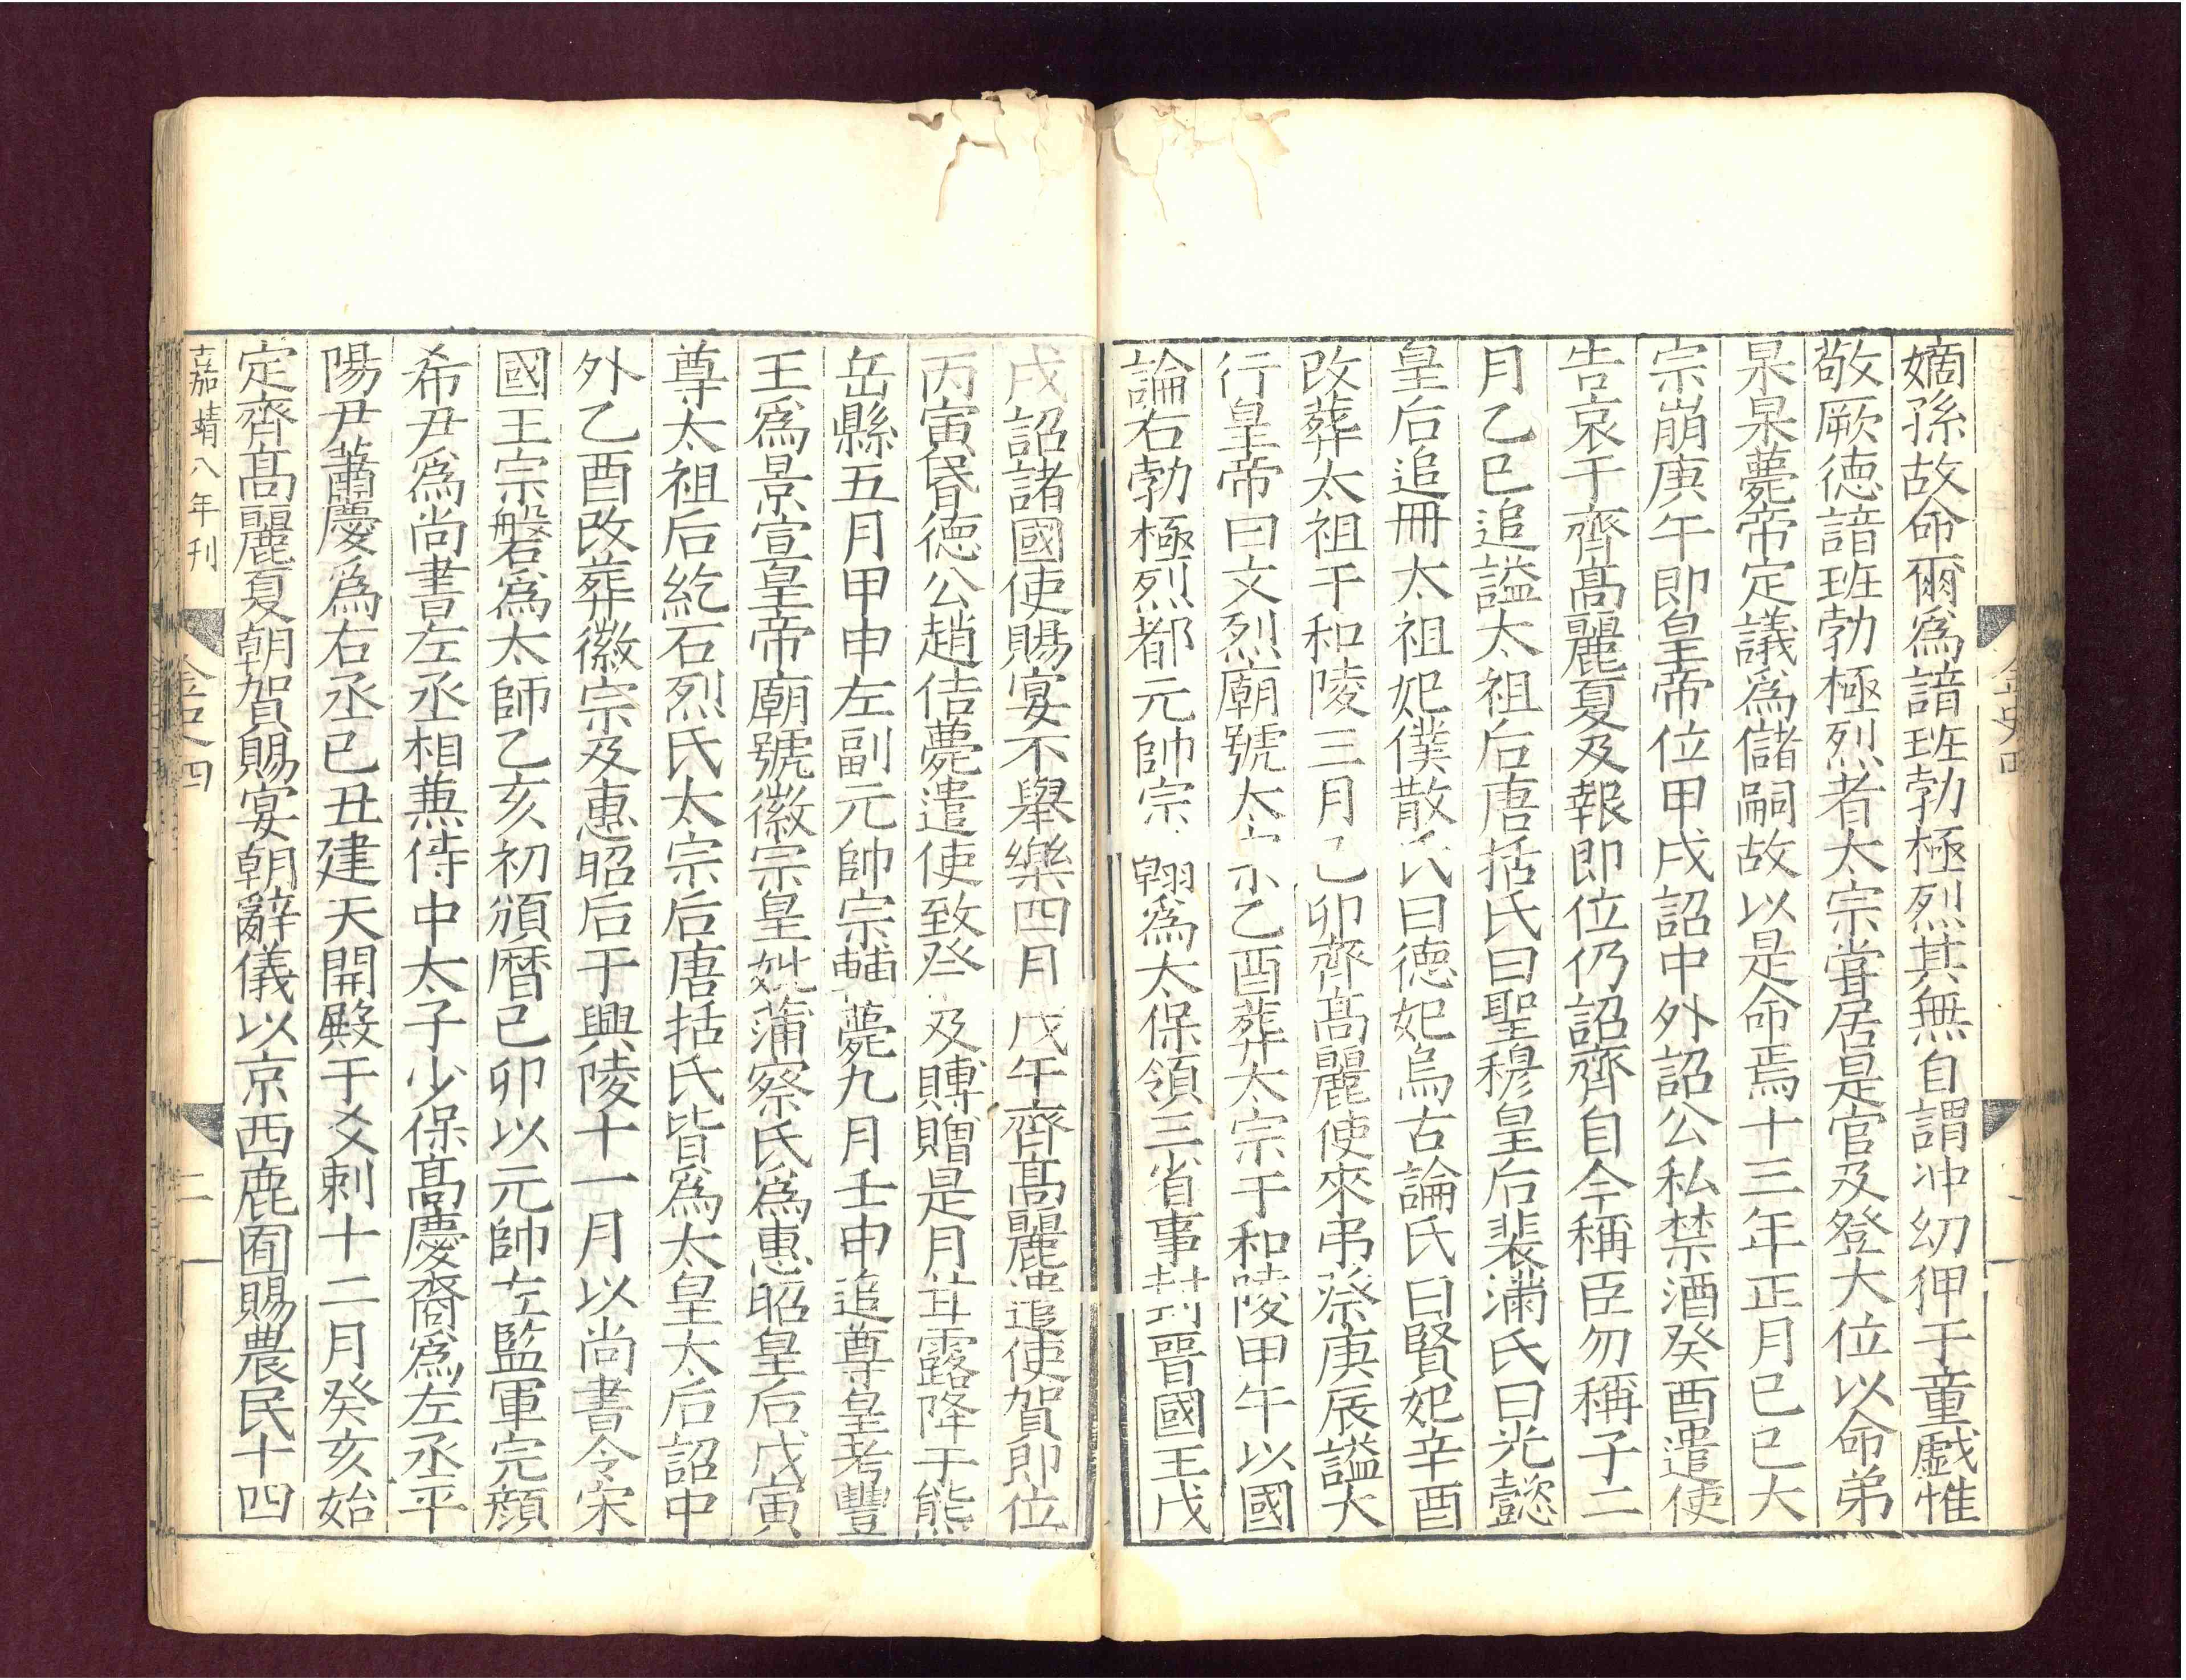 嫡孫故命爾爲諳班勃極烈其無自謂冲幼狎于童戯惟
敬厥德諳班勃極烈者太宗甞居是官及登大位以命弟
杲杲薨帝定議爲儲嗣故以是命焉十三年正月已巳大
宗崩庚午即皇帝位甲戌詔中外詔公私禁酒癸酉遣使
告哀于齊髙麗夏及報即位仍詔齊自今稱臣勿稱子二
月乙巳追謚太祖后唐括氏曰聖穆皇后裴滿氏曰光懿
皇后追冊太祖妃僕散氏曰德妃烏古論氏曰賢妃辛酉
改葬太祖于和陵三月己卯齊髙麗使來弔祭庚辰謚大
行皇帝曰文烈廟號太宗乙酉葬太宗于和陵甲午以國
論右勃極烈都元帥宗翰爲太保領三省事封晉國王戊
戌詔諸國使賜宴不舉樂四月戊午齊髙麗遣使賀即位
丙寅昏德公趙佶薨遣使致祭及賻贈是月甘露降于熊
岳縣五月甲申左副元帥宗輔薨九月壬申追尊皇考豐
王爲景宣皇帝廟號徽宗皇妣蒲察氏爲惠昭皇后戊寅
尊太祖后紇石烈氏太宗后唐括氏皆爲太皇太后詔中
外乙酉改葬徽宗及惠昭后于興陵十一月以尚書令宋
國王宗磐爲太師乙亥初頒曆己卯以元帥左監軍完顔
希尹爲尚書左丞相兼侍中太子少保髙慶裔爲左丞平
陽尹蕭慶爲右丞已丑建天開殿于爻剌十二月癸亥始
定齊髙麗夏朝賀賜宴朝辭儀以京西鹿囿賜農民十四
嘉靖八年刊
金史四
二